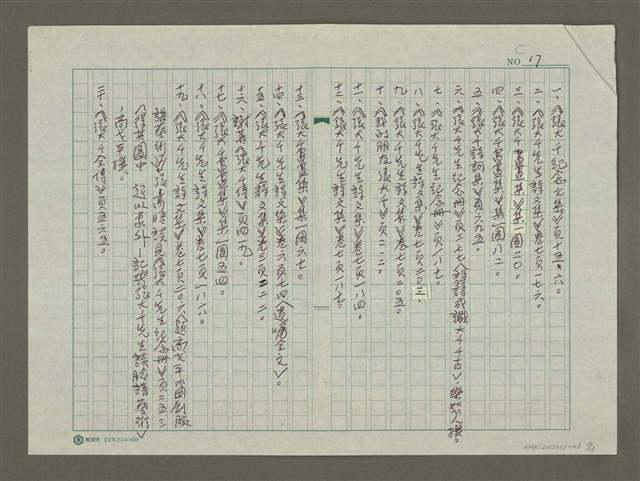 NO. 17
一、《張大千紀念文集》頁十五、六八。
二、《張大千先生詩文集》卷七頁一七六。
三、《張大千書畫集》集一圖二〇。
四、《張大千書畫集》集一圖八二。
五、《張大千詩詞集》頁六九五。
六、《張大千先生紀念冊》頁三七七 樂恕人撰。
七、《張大千先生紀念冊》頁一八七。
八、《張大千先生詩文集》卷七頁二〇三。
九、《張大千先生詩文集》卷七頁二〇五。
十、《我的朋友張大千》頁二一二。
十一、《張大千先生詩文集》卷七頁一八四。
十二、《張大千先生詩文集》卷七頁一八七。
十三、《張大千書畫集》集一圖六七。
十四、《張大千先生詩文集》卷六頁七四〈遺囑全文〉。
十五、《張大千先生詩文集》卷三頁二二二。
十六、謝著《張大千傳》頁四一九。
十七、《張大千書畫集》集一圖五四。
十八、《張大千先生詩文集》卷七頁一八八。
十九、《張大千先生詩文集》卷七頁二〇六〈題高戈平國劇臉
譜藝術〉，張高晤談見《張大千先生紀念冊》頁二五三
〈得其圜中 超以象外—記與張大千先生談臉譜藝術〉
，高戈平撰。
二十、《張大千全傳》頁五六五。
24×25=600